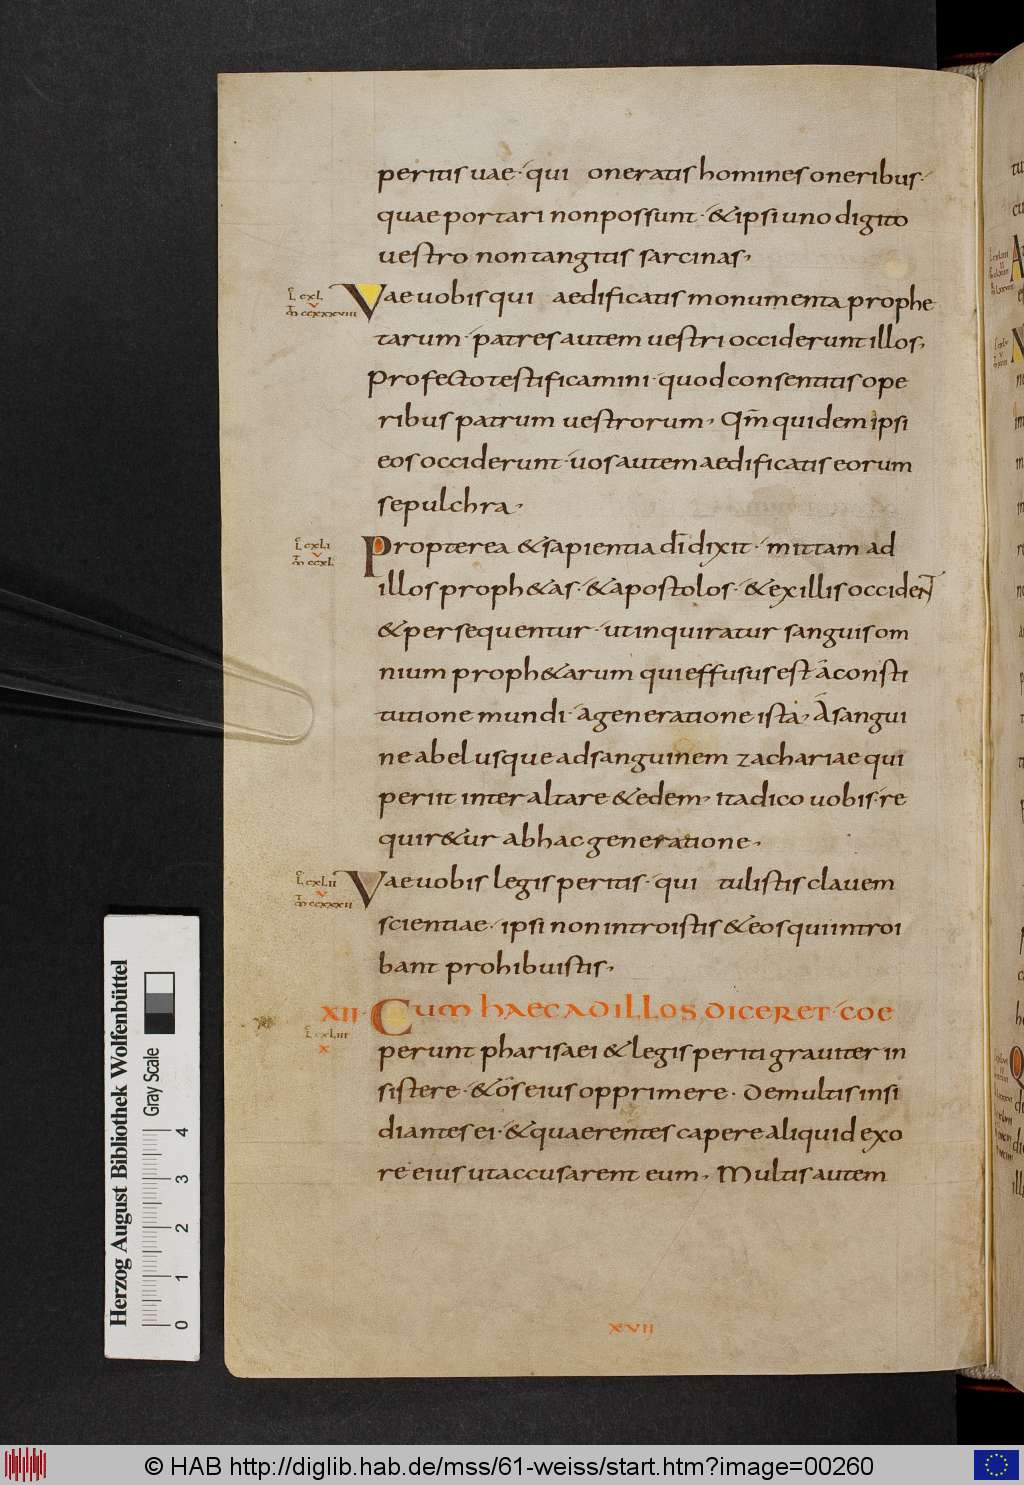 peritis uae · qui oneratis homines oneribus ·
quae portari non possunt · & ipsi uno digito
uestro non tangitis sarcinas,
L cxl.
Vae uobis qui aedificatis monumenta prophe
V
M ccxxxviii
tarum · patres autem uestri occiderunt illos,
Profecto testificamini · quod consentitis ope
ribus patrum uestrorum, Qm̄ quidem ipsi
eos occiderunt · uos autem aedificatis eorum
sepulchra,
L cxli
Propterea & sapientia dī dixit · mittam ad
V
M ccxl.
illos proph&as · & apostolos · & ex illis occident
& persequentur · ut inquiratur sanguis om
nium proph&arum qui effusus est a consti
tutione mundi · a generatione ista, A sangui
ne abel usque ad sanguinem zachariae qui
periit inter altare & edem, ita dico uobis · re
quir&ur ab hac generatione,
L cxlii
Vae uobis legis peritis · qui tulistis clauem
V
M ccxxxii
scientiae · ipsi non introistis & eos qui introi
bant prohibuistis,
XII · Cum haec ad illos diceret · coe
L cxliii
X
perunt pharisaei & legis periti grauiter in
sistere · & os eius opprimere · De multis insi
diantes ei · & quaerentes capere aliquid ex o
re eius ut accusarent eum, Multis autem
xvij
Herzog August Bibliothek Wolfenbüttel
Gray Scale
0 1 2 3 4
© HAB http://diglib.hab.de/mss/61-weiss/start.htm?image=00260